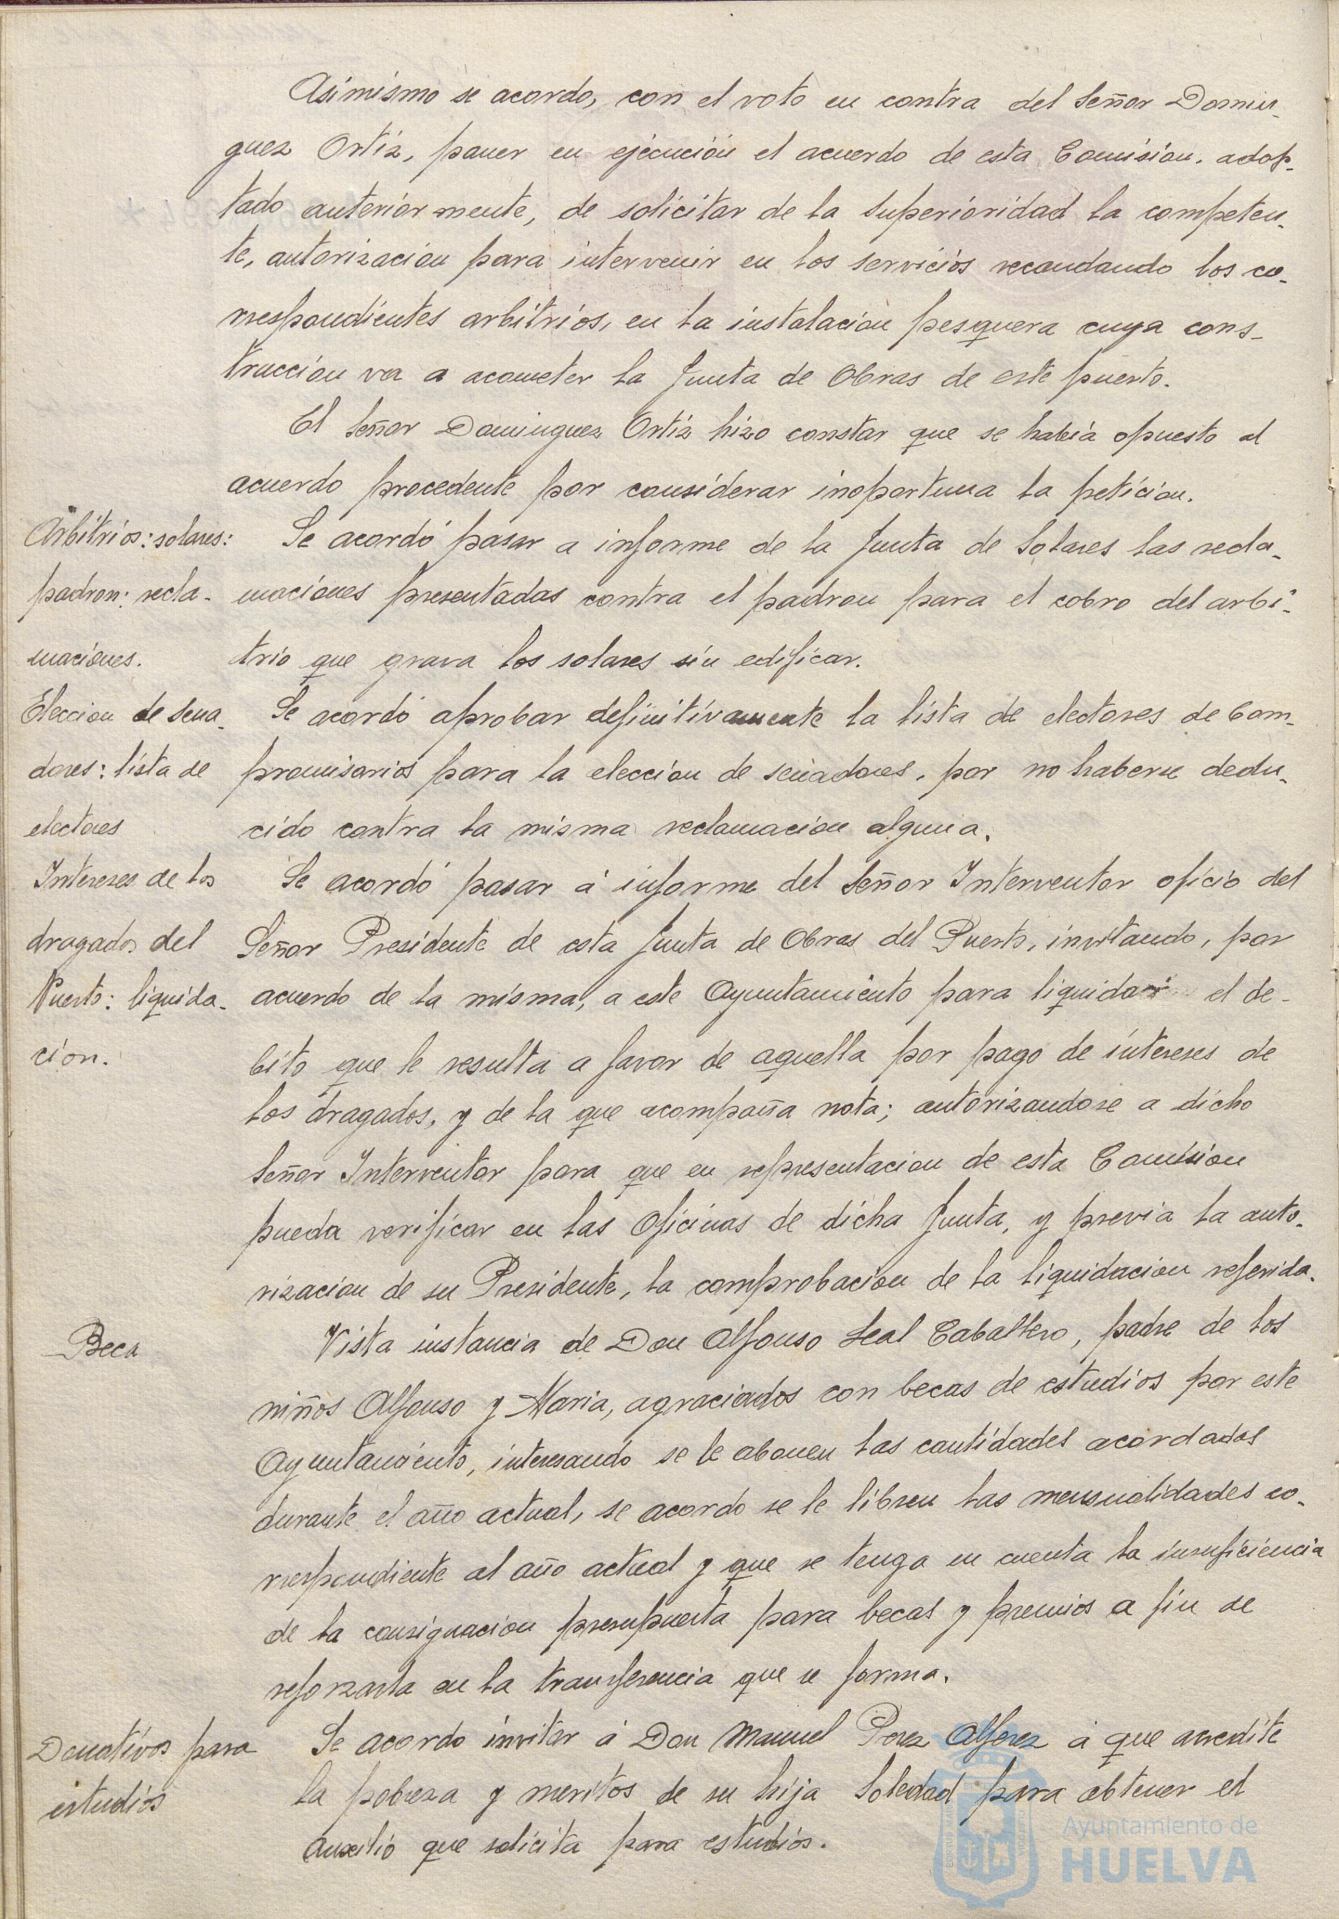 Asimismo se acordo, con el voto en contra del Señor Domin-
guez Ortiz, poner en ejecución el acuerdo de esta Comision, adop-
tado anteriormente, de solicitar de la Superioridad la competen-
te, autorizacion para intervenir en los servicios recaudando los co-
rrespondientes arbitrios, en la instalación pesquera cuya cons-
truccion va a acometer la Junta de Obras de este puerto.
El Señor Dominguez Ortiz hizo constar que se habia opuesto al
acuerdo precedente por considerar inoportuna la peticion.
Arbitrios: solares:
padron: recla-
maciones.
Se acordó pasar a informe de la Junta de Solares las recla-
maciones presentadas contra el padron para el cobro del arbi-
trio que grava los solares sin edificar.
Eleccion de sena-
dores: lista de
electores
Se acordó aprobar definitivamente la lista de electores de Com-
promisarios para la eleccion de senadores, por no haberse dedu-
cido contra la misma reclamacion alguna.
Intereses de los
dragados del
Puerto: liquida-
cion.
Se acordó pasar á informe del Señor Interventor oficio del
Señor Presidente de esta Junta de Obras del Puerto, invitando, por
acuerdo de la misma, a este Ayuntamiento para liquidar el de-
bito que le resulta a favor de aquella por pago de intereses de
los dragados, y de la que acompaña nota; autorizandose a dicho
Señor Interventor para que en representacion de esta Comision
pueda verificar en las Oficinas de dicha Junta, y previa la auto-
rizacion de su Presidente, la comprobacion de la liquidacion referida.
Beca
Vista instancia de Don Alfonso Leal Caballero, padre de los
niños Alfonso y Maria, agraciados con becas de estudios por este
Ayuntamiento, interesando se le abonen las cantidades acordadas
durante el año actual, se acordo se le libren las mensualidades co-
rrespondiente al año actual y que se tenga en cuenta la insuficiencia
de la consignacion presupuesta para becas y premios a fin de
reforzarla en la transferencia que se forma.
Donativos para
estudios
Se acordo invitar á Don Manuel Perez Alferez á que acredite
la pobreza y meritos de su hija Soledad para obtener el
auxilio que solicita para estudios.
Ayuntamiento de
HUELVA